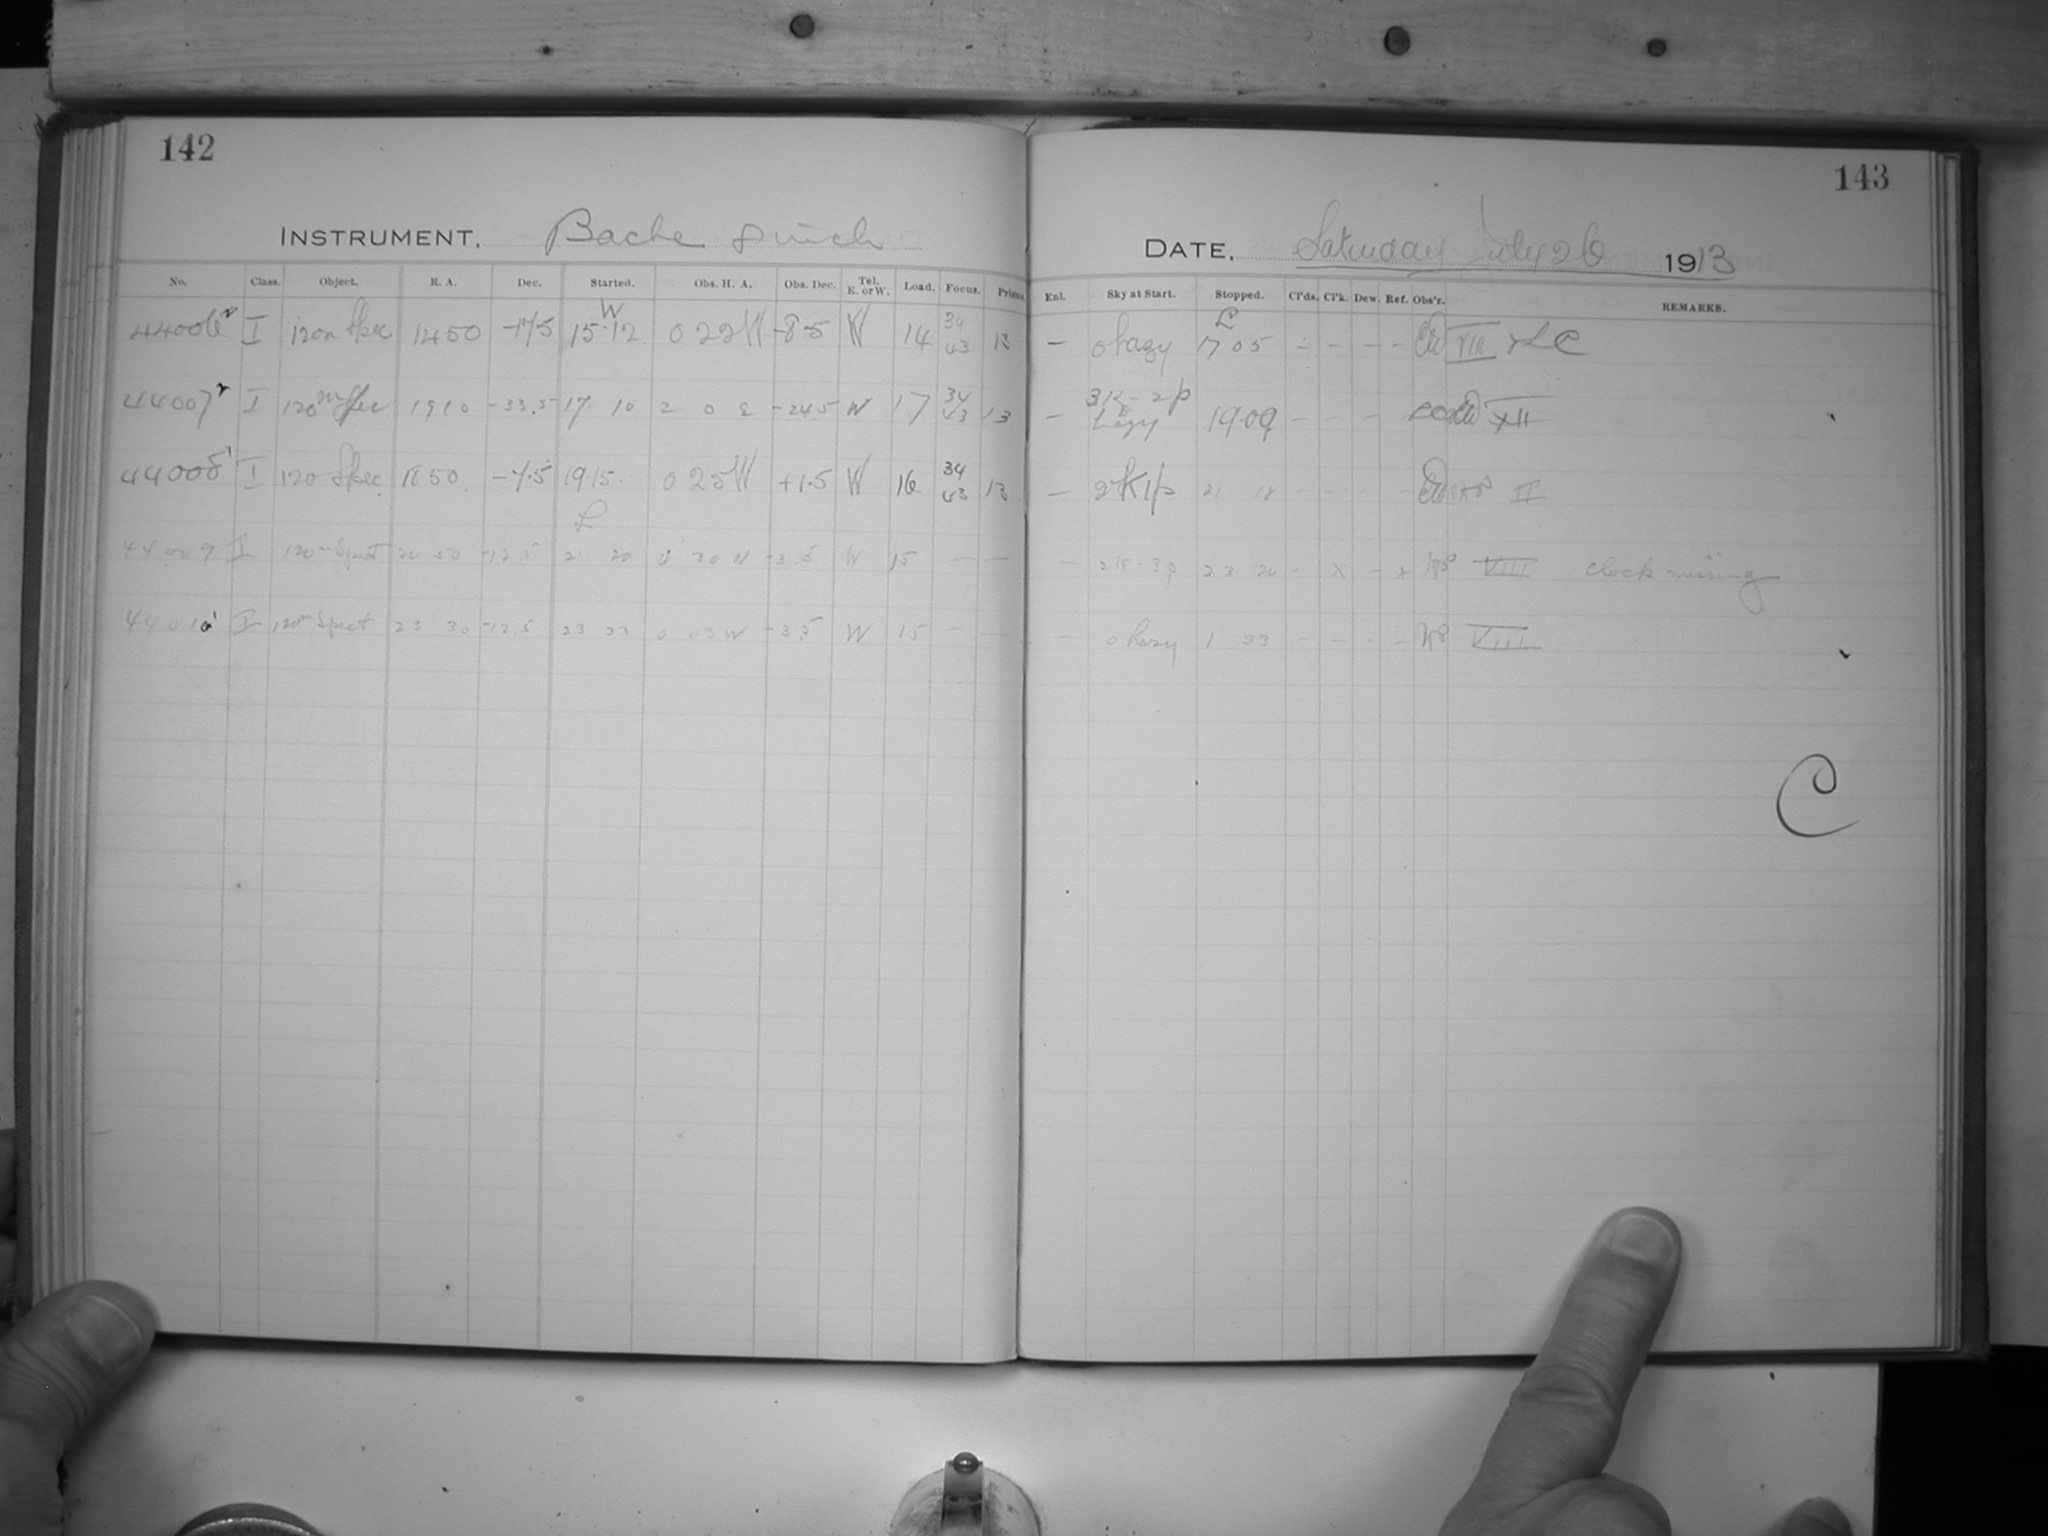 142
143
INSTRUMENT, Bache 8 inch
DATE, Saturday July 26 1913
No. Class. Object. R. A. Dec. Started. Obs. H. A. Obs. Dec. Tel. E. or W. Load. Focus. Prism.
Enl. Sky at Start. Stopped. Cl'ds. Cl'k. Dew. Ref. Obs'r. REMARKS.
W
L
44006 I 120m Spec 14 50 -17.5 15.12 0 22 W -8.5 W 14 34 43 13 — 0 hazy 17 05 - - - - XIII
44007 I 120m Spec 19 10 -33.5 17 10 2 0 E -24.5 W 17 34 43 13 — hazy 19.09 - - - XII
44008 I 120 Spec 18 50 -7.5 19.15 0 25 W +1.5 W 16 34 43 13 — 2K1p 21 18 - - - - II
L
44009 I 120m Spect 20 50 -12.5 21 20 0 30 W -3.5 W 15 — — — 2K-3p 23 20 - x - x VIII clock missing
44010 I 120m Spect 23 30 -12.5 23 33 0 03 W -3.5 W 15 — — — 0 hazy 1 33 - - - - VIII
C